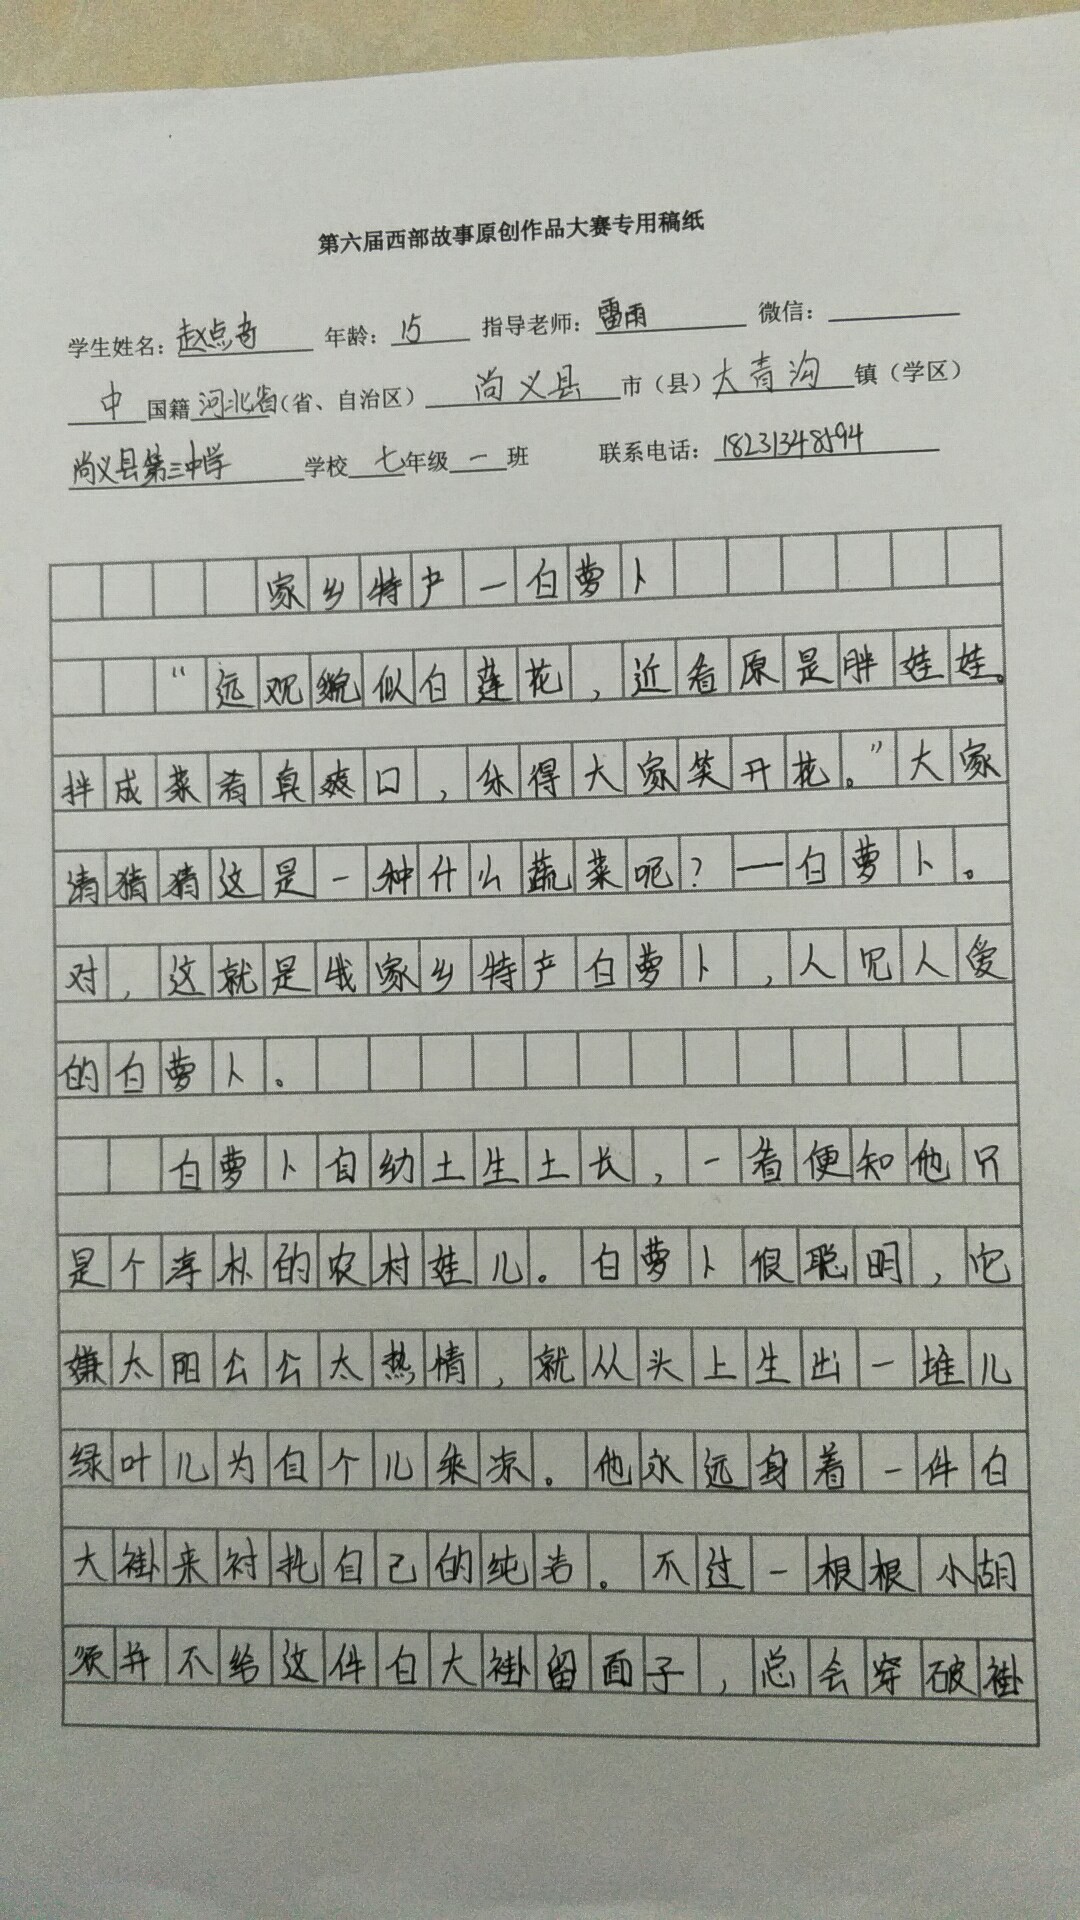 第六届西部故事原创作品大赛专用稿纸
学生姓名：赵点奇 年龄：15 指导老师：雷雨 微信：
中国籍 河北省（省、自治区） 尚义县 市（县）大青沟 镇（学区）
尚义县第三中学 学校 七年级 一 班 联系电话：18231348594
家乡特产一白萝卜
“远观貌似白莲花，近看原是胖娃娃。
拌成菜肴真爽口，乐得大家笑开花。”大家
请猜猜这是一种什么蔬菜呢？—白萝卜。
对，这就是我家乡特产白萝卜，人见人爱
的白萝卜。
白萝卜自幼土生土长，一看便知他只
是个淳朴的农村娃儿。白萝卜很聪明，它
嫌太阳公公太热情，就从头上生出一堆儿
绿叶儿为自个儿乘凉。他永远身着一件白
大褂来衬托自己的纯洁。不过一根根小胡
须并不给这件白大褂留面子，总会穿破褂